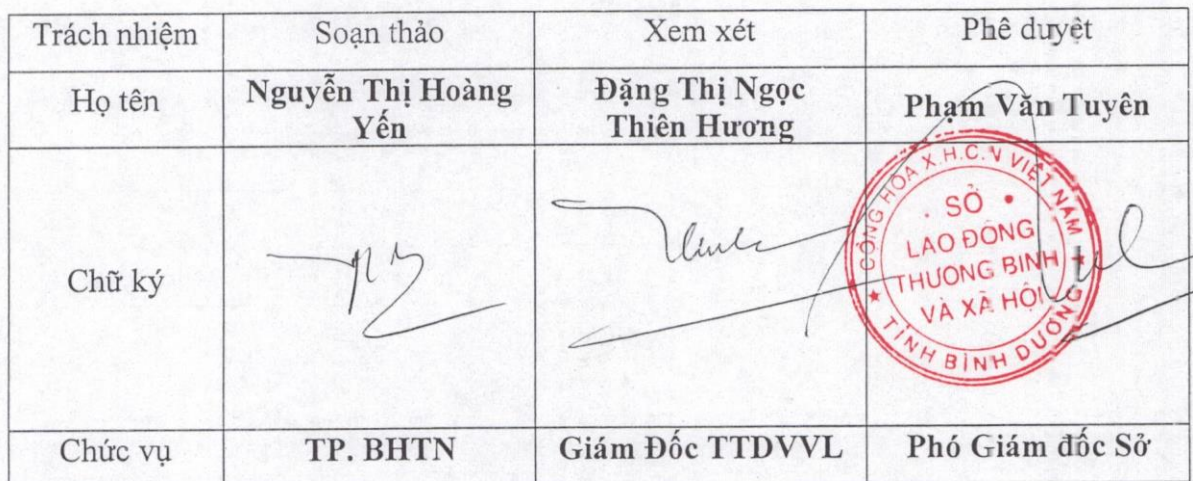 Trách nhiệm
Soạn thảo
Xem xét
Phê duyệt
Họ tên
Nguyễn Thị Hoàng
Yến
Đặng Thị Ngọc
Thiên Hương
Phạm Văn Tuyên
Chữ ký
CỘNG HÒA X.H.C.N VIỆT NAM
SỞ
LAO ĐỘNG
THƯƠNG BINH
VÀ XÃ HỘI
TỈNH BÌNH DƯƠNG
Chức vụ
TP. BHTN
Giám Đốc TTDVVL
Phó Giám đốc Sở